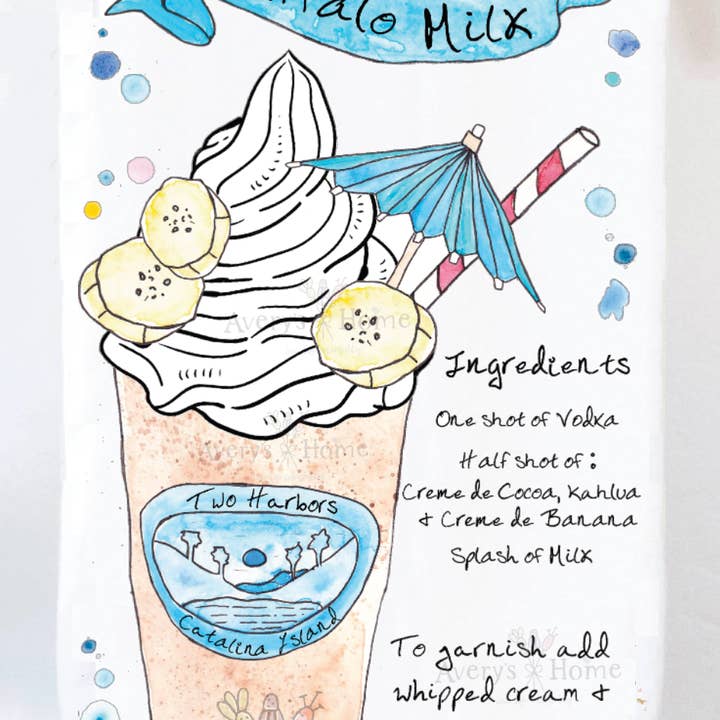 Milk
Avery's Home
Ingredients
One shot of Vodka
Half shot of :
Creme de Cocoa, Kahlua
& Creme de Banana
Splash of Milk
Avery's Home
Two Harbors
Catalina Island
To garnish add
Avery's Home
whipped cream &